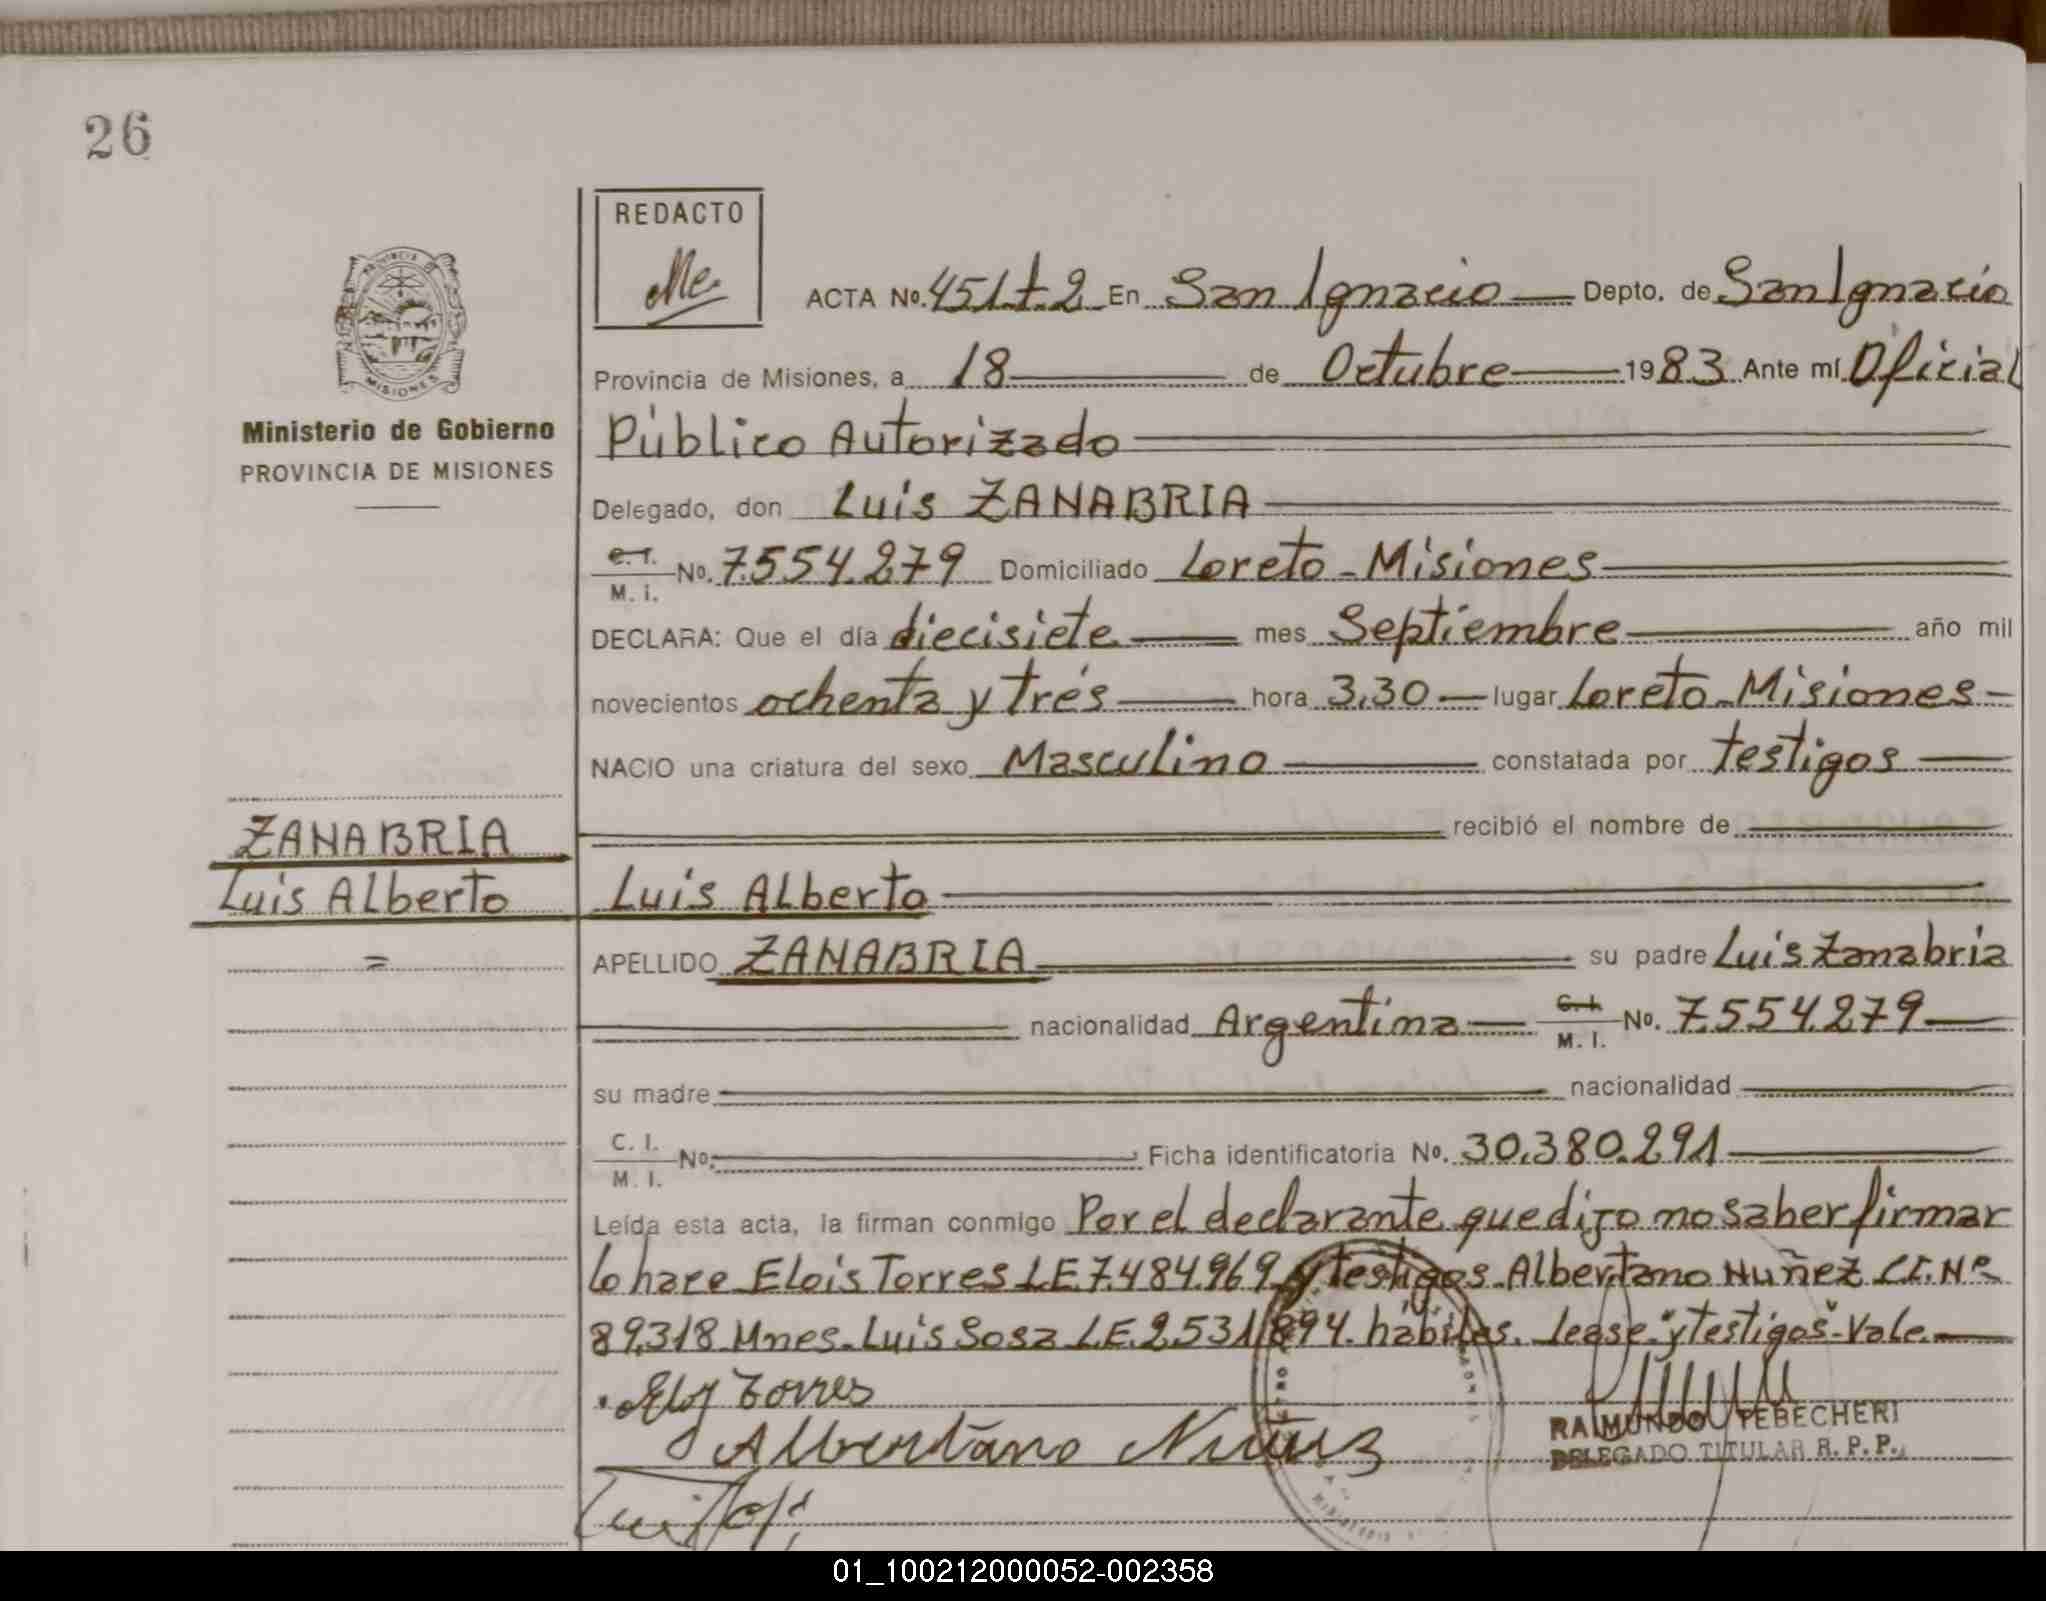 26
REDACTO
ACTA No. 451.t.2 En San Ignacio Depto. de San Ignacio
Provincia de Misiones, a 18 de Octubre 1983 Ante mí Oficial
Ministerio de Gobierno
PROVINCIA DE MISIONES
Público Autorizado
Delegado, don Luis ZANABRIA
C. I.
M. I. No. 7.554.279 Domiciliado Loreto - Misiones
DECLARA: Que el día diecisiete mes Septiembre año mil
novecientos ochenta y trés hora 3,30 lugar Loreto - Misiones
NACIO una criatura del sexo Masculino constatada por testigos
ZANABRIA
recibió el nombre de
Luis Alberto
Luis Alberto
=
APELLIDO ZANABRIA su padre Luis Zanabria
nacionalidad Argentina C. I.
M. I. No. 7.554.279
su madre nacionalidad
C. I.
M. I. No. Ficha identificatoria No. 30.380.291
Leída esta acta, la firman conmigo Por el declarante que dijo no saber firmar
lo hace Elois Torres L.E 7.484.969 y testigos Albertano Nuñez C.I. Nº
89.318 Mnes. Luis Sosa L.E. 2.531.894. hábiles. lease "y testigos" Vale.
Eloy Torres
Albertano Nuñez
RAIMUNDO TEBECHERI
DELEGADO TITULAR R. P. P.
01_100212000052-002358